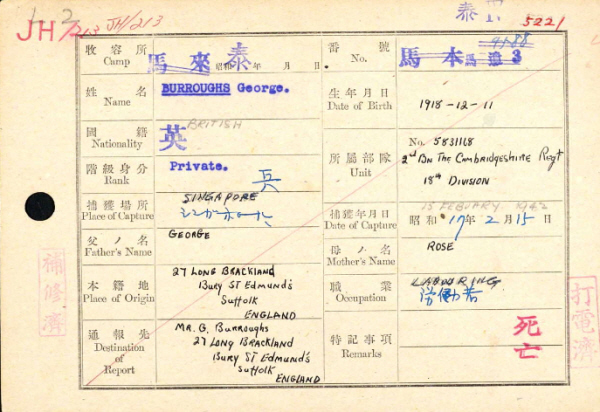 JH/213 JH/213
泰
5221
牧容所 Camp
馬來泰
昭和 年 月 日
番號 No.
馬本馬 3
姓名 Name
BURROUGHS George.
生年月日 Date of Birth
1918-12-11
國籍 Nationality
英
BRITISH
所屬部隊 Unit
No. 5831168
2nd Bn The Cambridgeshire Regt
18th DIVISION
階級身分 Rank
Private.
兵
捕獲場所 Place of Capture
SINGAPORE
捕獲年月日 Date of Capture
15 FEBRUARY 1942
昭和 17年 2月 15日
父ノ名 Father's Name
GEORGE
母ノ名 Mother's Name
ROSE
本籍地 Place of Origin
27 LONG BRACKLAND
BURY ST EDMUND'S
SUFFOLK
ENGLAND
職業 Occupation
LABOURING
労働者
通報先 Destination of Report
MR. G. Burroughs
27 LONG BRACKLAND
BURY ST EDMUND'S
SUFFOLK
ENGLAND
特記事項 Remarks
死亡
補修済
打電濟